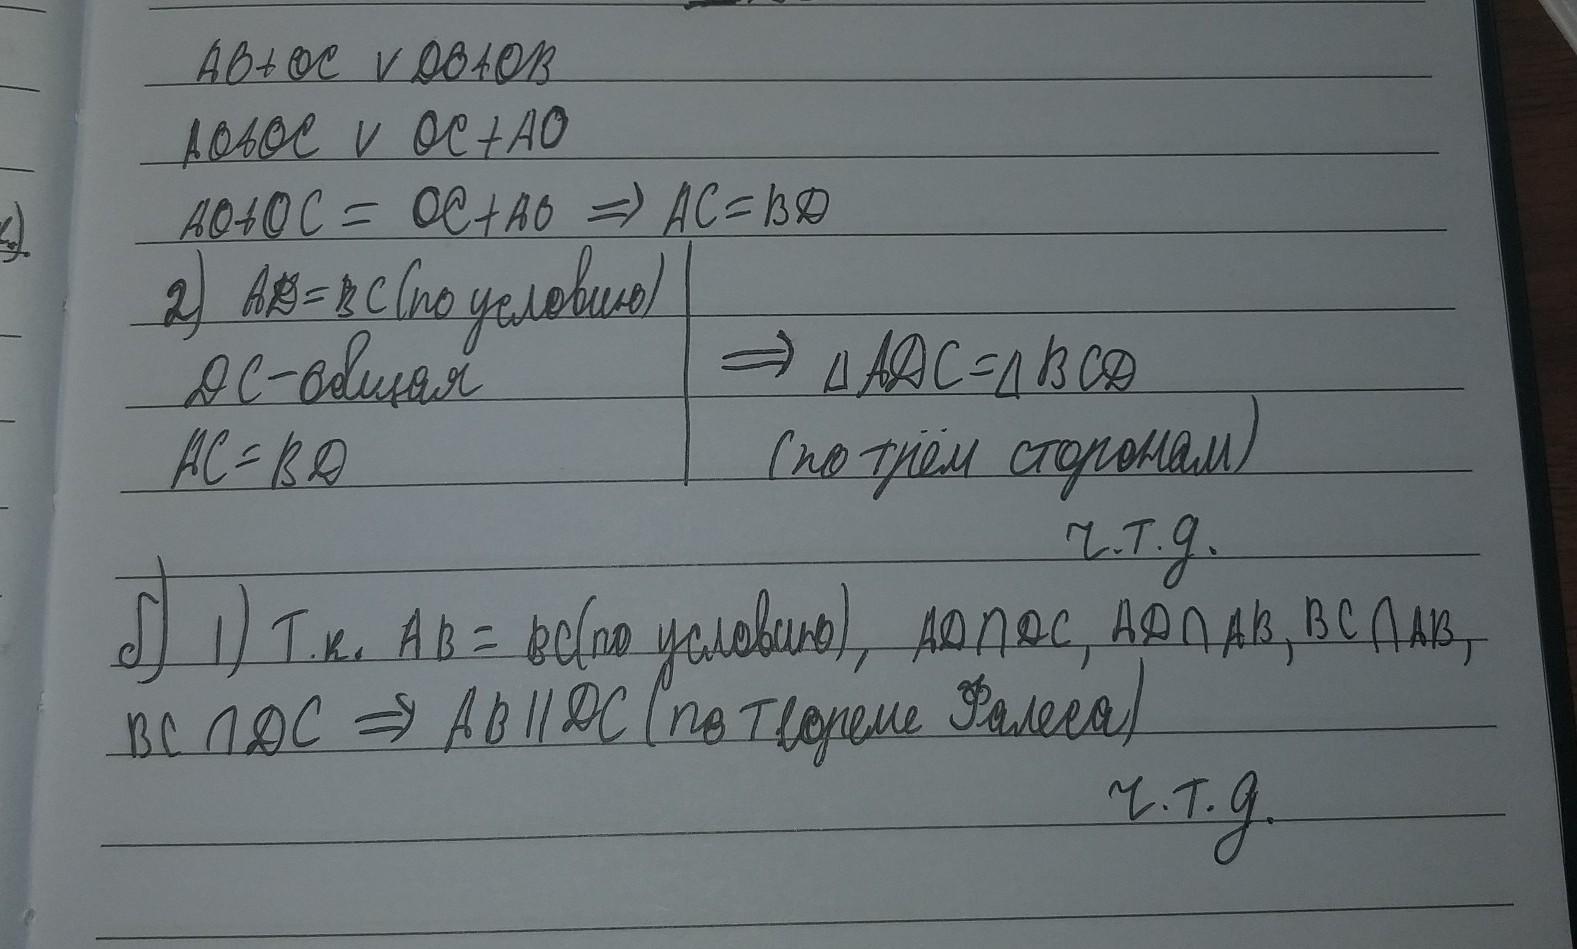 AO+OC v DO+OB
AO+OC v OC+AO
AO+OC = OC+AO ⇒ AC=BD
2) AD=BC(по условию)
DC-общая
AC=BD
⇒ △ADC=△BCD
(по трём сторонам)
ч.т.д.
б) 1) Т.к. AB = BC(по условию), AD∩DC, AD∩AB, BC∩AB,
BC∩DC ⇒ AB||DC (по теореме Фалеса)
ч.т.д.